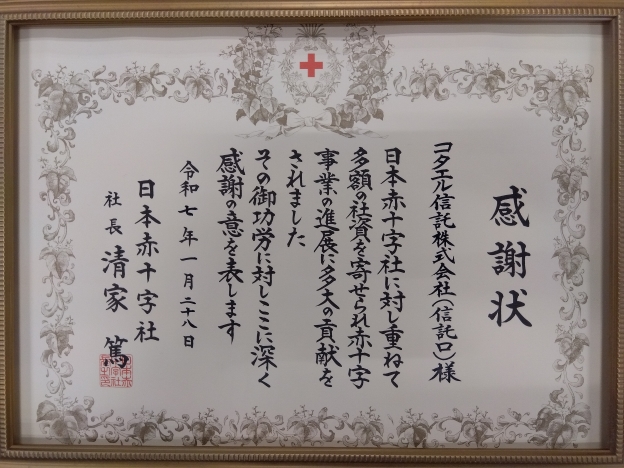 感謝状
コタエル信託株式会社(信託口)様
日本赤十字社に対し重ねて
多額の社資を寄せられ赤十字
事業の進展に多大の貢献を
されました
その御功労に対しここに深く
感謝の意を表します
令和七年一月二十八日
日本赤十字社
社長 清家 篤